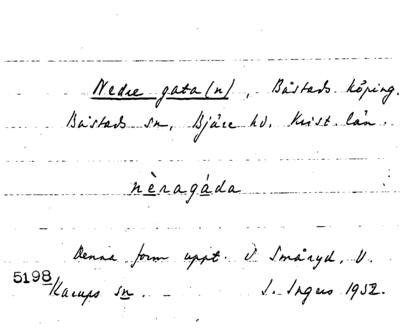 Nedre gata(n), Båstads köping.
Båstads sn, Bjäre hd. Krist. län.
nèragáda
Denna form uppt. i Småryd, V.
5198 /Karups sn. - S. Ingers 1952.